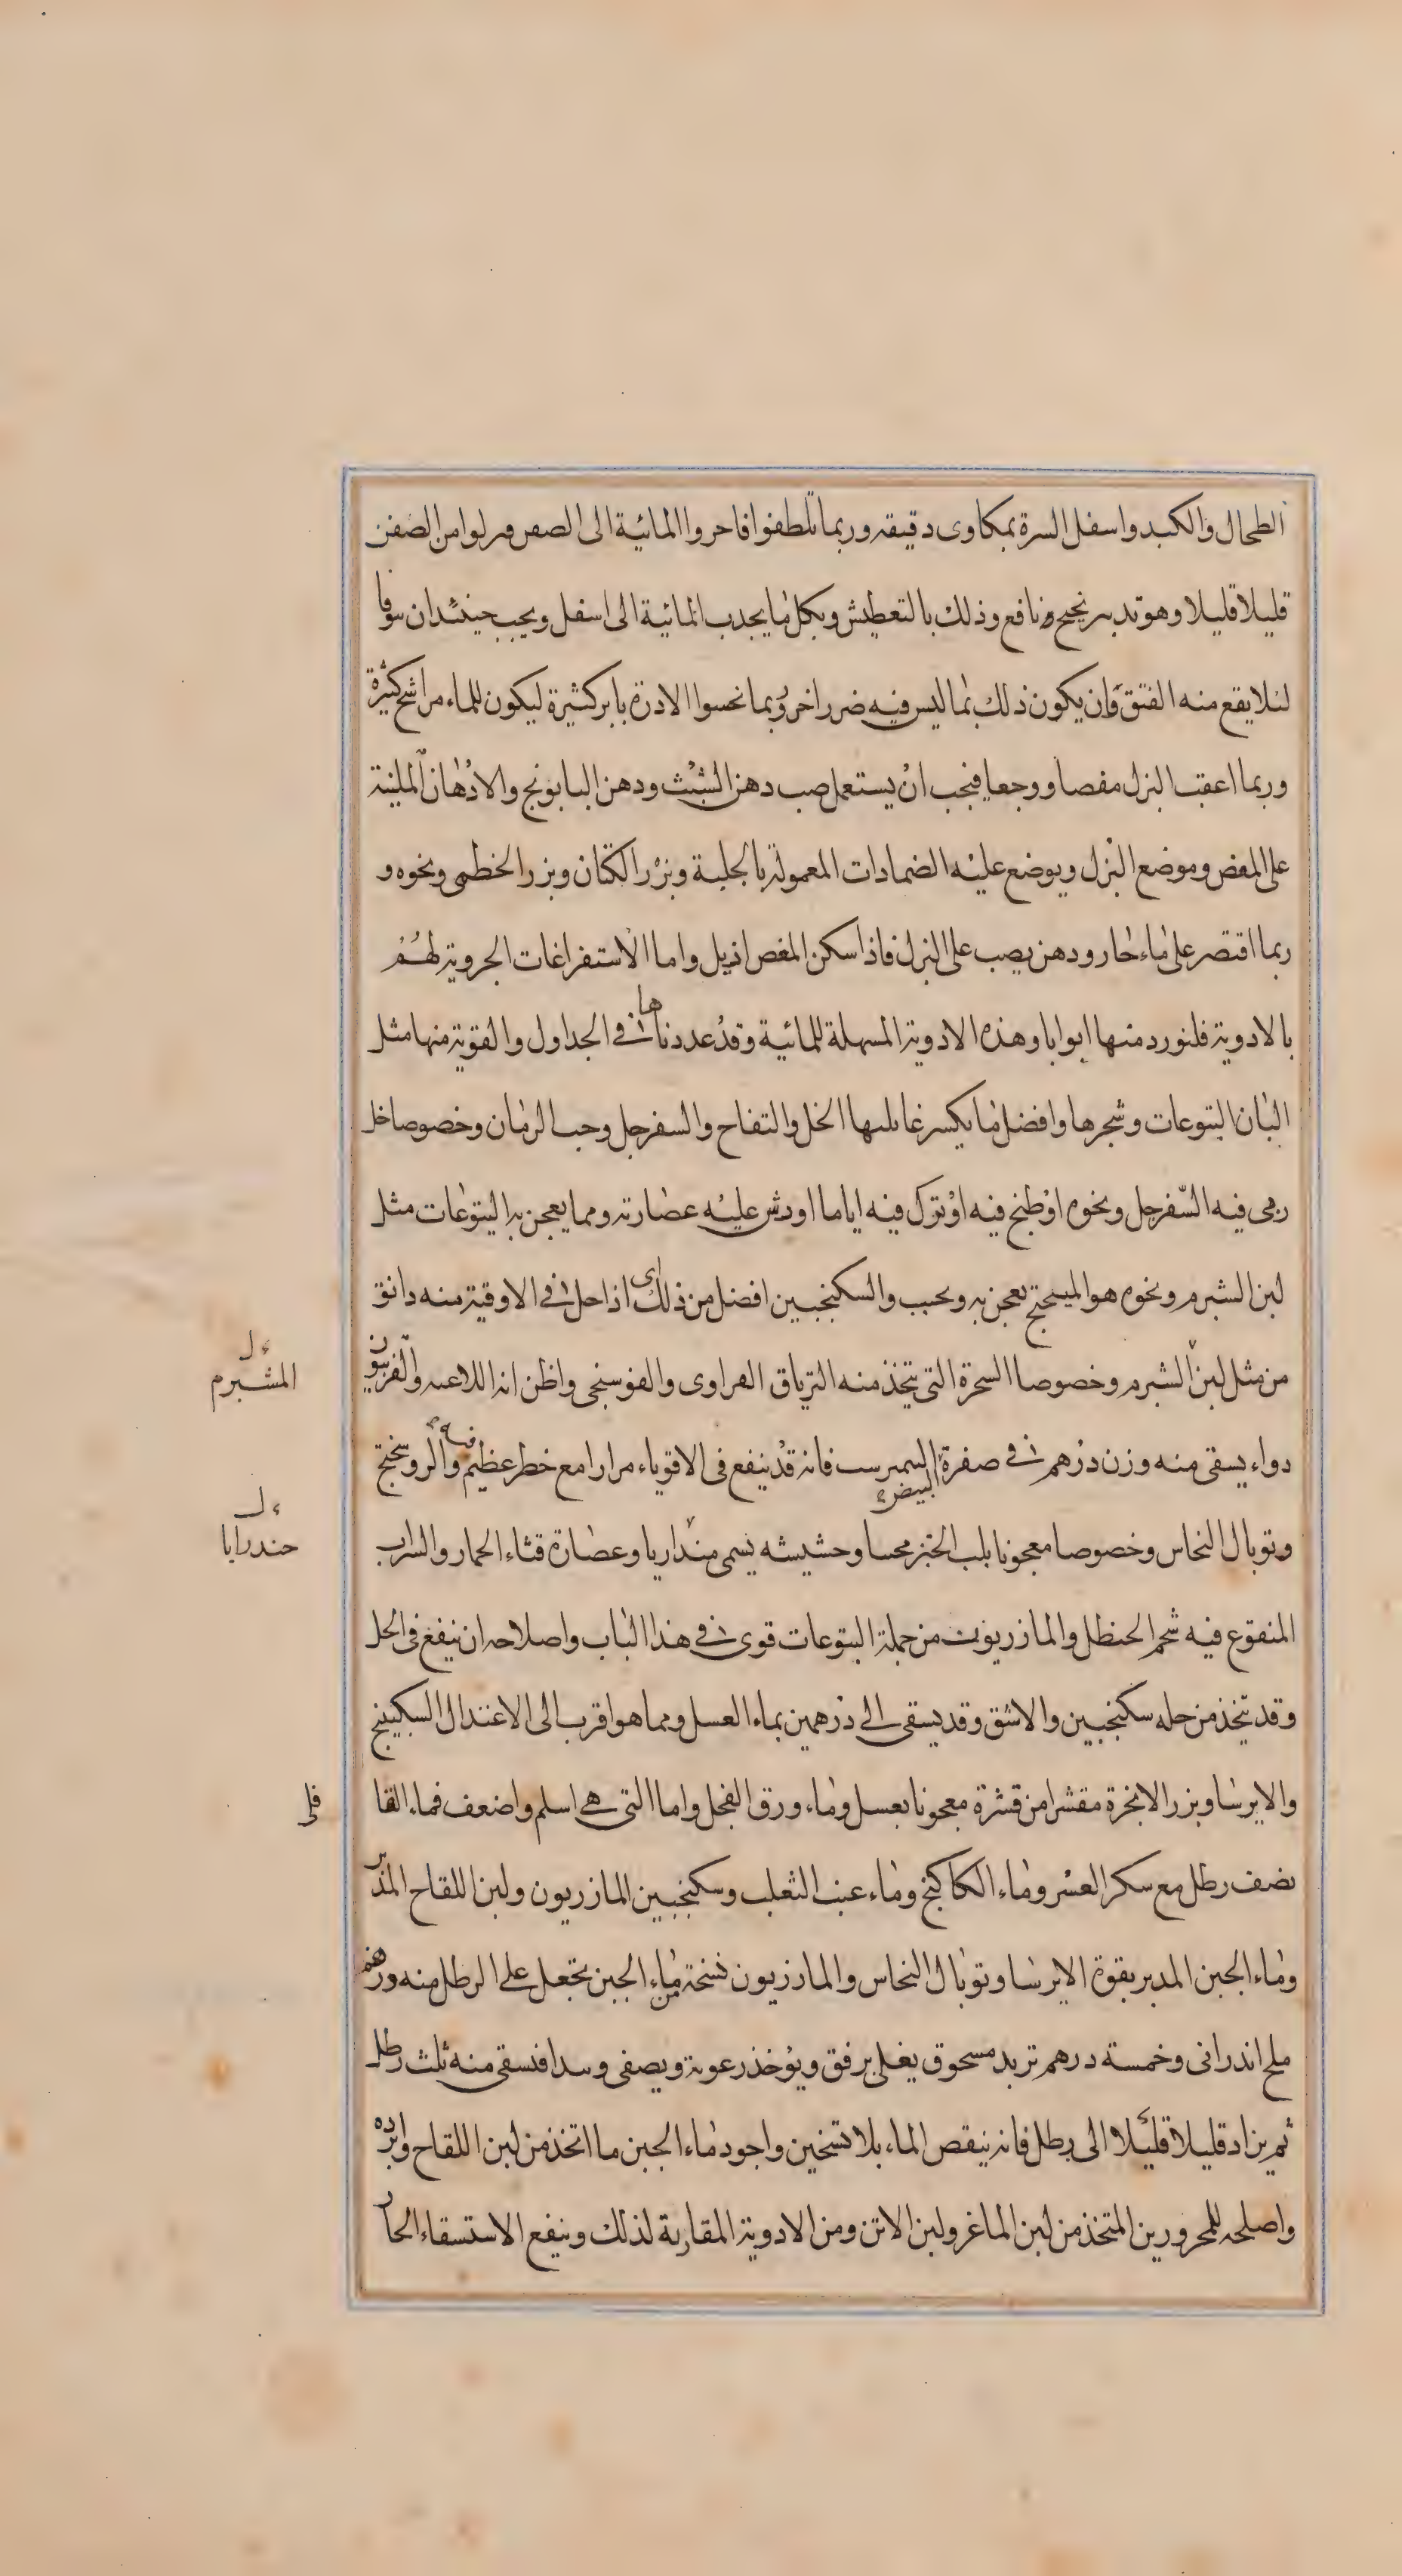 الطحال والكبد واسفل السرة بمكاوى دقيقه وربما تلطفوا فاحروا المائية الى الصفن وبرلوا من الصفن
قليلا قليلا وهو تدبير نجيح ونافع وذلك بالتعطيش وبكل ما يجدب المائية الى اسفل ويجب حينئد ان يتوقا
لئلا يقع منه الفتق وان يكون ذلك بما ليس فيه ضرر اخر وربما نخسوا الادرة بابر كثيرة ليكون للماء مراشح كثيرة
وربما اعقب البزل مغصا ووجعا فيجب ان يستعمل صب دهن الشبث ودهن البابونج والادهان الملينة
على المغص وموضع البزل ويوضع عليه الضمادات المعمولة بالحلبة وبزر الكتان وبزر الخطمى ونحوه و
ربما اقتصر على ماء حار ودهن يصب على البزل فاذا سكن المغص ازيل واما الاستفراغات الجروية لهم
بالادوية فلنورد منها ابوابا وهذه الادوية المسهلة للمائية وقد عددناها في الجداول والقوية منها مثل
البان اليتوعات وشجرها وافضل ما يكسر غايلتها الخل والتفاح والسفرجل وحب الرمان وخصوصا خل
رمى فيه السفرجل ونحوه او طبخ فيه او ترك فيه اياما او رش عليه عصارته ومما يعجن به اليتوعات مثل
لبن الشبرم ونحوه هو الميبختج يعجن به ويحبب والسكنجبين افضل من ذلك اى اذا حل في الاوقية منه دانق
من مثل لبن الشبرم وخصوصا السحرة التى يتخذ منه الترياق الفراوى والفوسنجى واظن انه اللاعيه والفربيون
المشبرم
دواء يسقى منه وزن درهم في صفرة البيض النيمبرست فانه قد ينفع فى الاقوياء مرارا مع خطر عظيم فيه والروسختج
وتوبال النحاس وخصوصا معجونا بلب الخبز محسا وحشيشه يسمى مندارايا وعصارة قثاء الحمار والشراب
حندرايا
المنقوع فيه شحم الحنظل والمازريون من جملة اليتوعات قوى في هذا الباب واصلاحه ان ينقع فى الخل
وقد يتخذ من حله سكنجبين والاشق وقد يسقى الى درهمين بماء العسل ومما هو اقرب الى الاعتدال السكبينج
والايرسا وبزر الانجرة مقشرا من قشرة معجونا بعسل وماء ورق الفجل واما التى هى اسلم واضعف فماء القا
قلى
نصف رطل مع سكر العشر وماء الكاكنج وماء عنب الثعلب وسكنجبين المازريون ولبن اللقاح المدبر
وماء الجبن المدبر بقوة الايرسا وتوبال النحاس والمازريون نسخة من ماء الجبن تجعل على الرطل منه درهم
ملح اندرانى وخمسة درهم تربد مسحوق يغلى برفق ويؤخذ رعوته ويصفى ويبدا فسقى منه ثلث رطل
ثم يزاد قليلا قليلا الى رطل فانه ينقص الماء بلا تسخين واجود ماء الجبن ما اتخذ من لبن اللقاح وابرده
واصلحه للمحرورين المتخذ من لبن الماعز ولبن الاتن ومن الادوية المقاربة لذلك وينفع الاستسقاء الحار